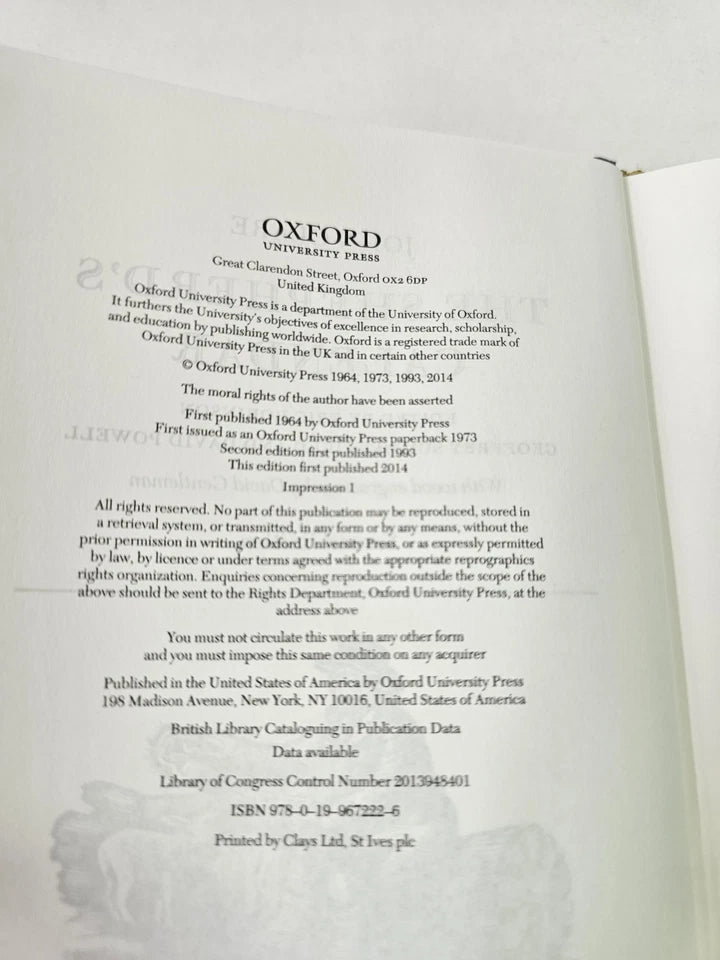 OXFORD
UNIVERSITY PRESS
Great Clarendon Street, Oxford OX2 6DP
United Kingdom
Oxford University Press is a department of the University of Oxford.
It furthers the University's objectives of excellence in research, scholarship,
and education by publishing worldwide. Oxford is a registered trade mark of
Oxford University Press in the UK and in certain other countries
© Oxford University Press 1964, 1973, 1993, 2014
The moral rights of the author have been asserted
First published 1964 by Oxford University Press
First issued as an Oxford University Press paperback 1973
Second edition first published 1993
This edition first published 2014
Impression 1
All rights reserved. No part of this publication may be reproduced, stored in
a retrieval system, or transmitted, in any form or by any means, without the
prior permission in writing of Oxford University Press, or as expressly permitted
by law, by licence or under terms agreed with the appropriate reprographics
rights organization. Enquiries concerning reproduction outside the scope of the
above should be sent to the Rights Department, Oxford University Press, at the
address above
You must not circulate this work in any other form
and you must impose this same condition on any acquirer
Published in the United States of America by Oxford University Press
198 Madison Avenue, New York, NY 10016, United States of America
British Library Cataloguing in Publication Data
Data available
Library of Congress Control Number 2013948401
ISBN 978–0–19–967222–6
Printed by Clays Ltd, St Ives plc